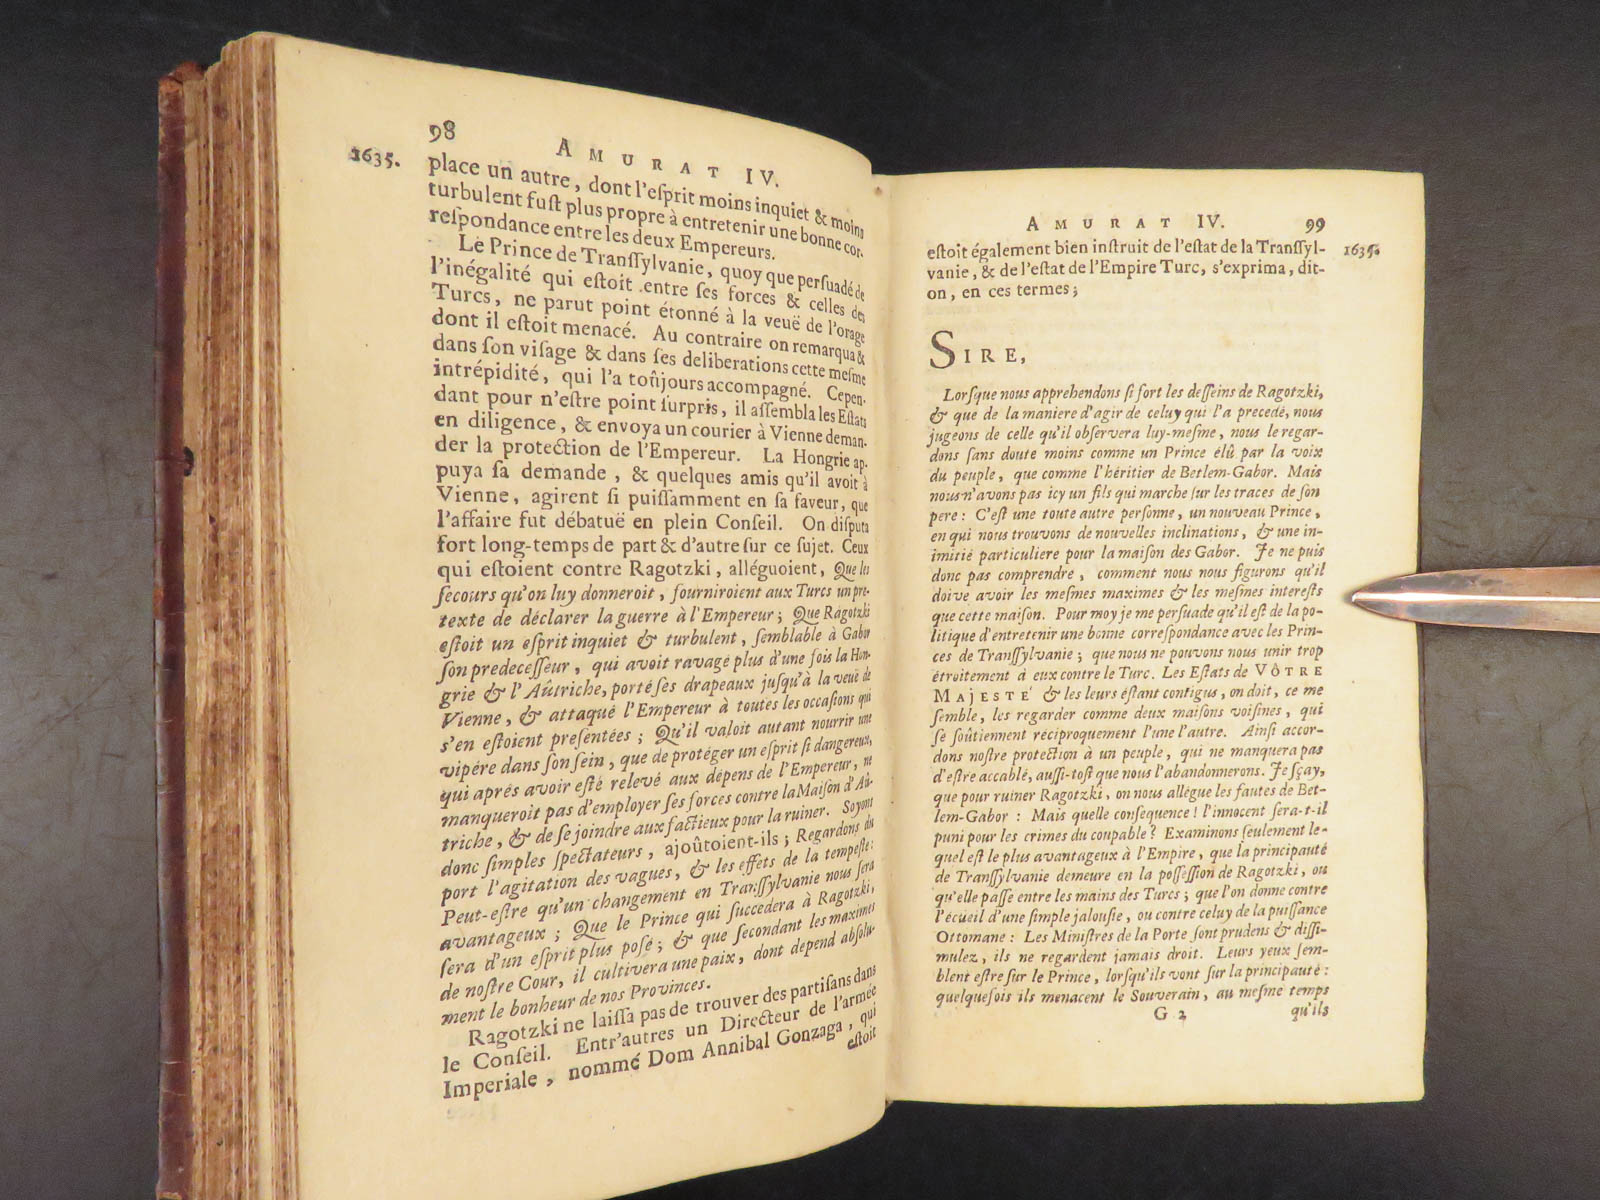 98
AMURAT IV.
1635.
place un autre, dont l'eſprit moins inquiet & moins
turbulent fuſt plus propre à entretenir une bonne cor-
reſpondance entre les deux Empereurs.
Le Prince de Tranſſylvanie, quoy que perſuadé de
l'inégalité qui eſtoit entre ſes forces & celles des
Turcs, ne parut point étonné à la veuë de l'orage
dont il eſtoit menacé. Au contraire on remarqua &
dans ſon viſage & dans ſes deliberations cette meſme
intrépidité, qui l'a toûjours accompagné. Cepen-
dant pour n'eſtre point ſurpris, il aſſembla les Eſtats
en diligence, & envoya un courier à Vienne deman-
der la protection de l'Empereur. La Hongrie ap-
puya ſa demande, & quelques amis qu'il avoit à
Vienne, agirent ſi puiſſamment en ſa faveur, que
l'affaire fut débatuë en plein Conſeil. On diſputa
fort long-temps de part & d'autre ſur ce ſujet. Ceux
qui eſtoient contre Ragotzki, alléguoient, Que les
ſecours qu'on luy donneroit, fourniroient aux Turcs un pre-
texte de déclarer la guerre à l'Empereur; Que Ragotzki
eſtoit un eſprit inquiet & turbulent, ſemblable à Gabor
ſon predeceſſeur, qui avoit ravagé plus d'une fois la Hon-
grie & l'Aûtriche, porté ſes drapeaux juſqu'à la veuë de
Vienne, & attaqué l'Empereur à toutes les occaſions qui
s'en eſtoient preſentées; Qu'il valoit autant nourrir une
vipére dans ſon ſein, que de protéger un eſprit ſi dangereux,
qui aprés avoir eſté relevé aux dépens de l'Empereur, ne
manqueroit pas d'employer ſes forces contre la Maiſon d'Aû-
triche, & de ſe joindre aux factieux pour la ruiner. Soyons
donc ſimples ſpectateurs, ajoûtoient-ils; Regardons du
port l'agitation des vagues, & les effets de la tempeſte:
Peut-eſtre qu'un changement en Tranſſylvanie nous ſera
avantageux; Que le Prince qui ſuccedera à Ragotzki,
ſera d'un eſprit plus poſé; & que ſecondant les maximes
de noſtre Cour, il cultivera une paix, dont dépend abſolu-
ment le bonheur de nos Provinces.
Ragotzki ne laiſſa pas de trouver des partiſans dans
le Conſeil. Entr'autres un Directeur de l'armée
Imperiale, nommé Dom Annibal Gonzaga, qui
eſtoit
AMURAT IV.
99
1635.
eſtoit également bien inſtruit de l'eſtat de la Tranſſyl-
vanie, & de l'eſtat de l'Empire Turc, s'exprima, dit-
on, en ces termes;
SIRE,
Lorſque nous apprehendons ſi fort les deſſeins de Ragotzki,
& que de la maniere d'agir de celuy qui l'a precedé, nous
jugeons de celle qu'il obſervera luy-meſme, nous le regar-
dons ſans doute moins comme un Prince élû par la voix
du peuple, que comme l'héritier de Betlem-Gabor. Mais
nous n'avons pas icy un fils qui marche ſur les traces de ſon
pere: C'eſt une toute autre perſonne, un nouveau Prince,
en qui nous trouvons de nouvelles inclinations, & une in-
imitié particuliere pour la maiſon des Gabor. Je ne puis
donc pas comprendre, comment nous nous figurons qu'il
doive avoir les meſmes maximes & les meſmes intereſts
que cette maiſon. Pour moy je me perſuade qu'il eſt de la po-
litique d'entretenir une bonne correſpondance avec les Prin-
ces de Tranſſylvanie; que nous ne pouvons nous unir trop
étroitement à eux contre le Turc. Les Eſtats de VÔTRE
MAJESTÉ & les leurs éſtant contigus, on doit, ce me
ſemble, les regarder comme deux maiſons voiſines, qui
ſe ſoûtiennent réciproquement l'une l'autre. Ainſi accor-
dons noſtre protection à un peuple, qui ne manquera pas
d'eſtre accablé, auſſi-toſt que nous l'abandonnerons. Je ſçay,
que pour ruiner Ragotzki, on nous allégue les fautes de Bet-
lem-Gabor: Mais quelle conſequence! l'innocent ſera-t-il
puni pour les crimes du coupable? Examinons ſeulement le-
quel eſt le plus avantageux à l'Empire, que la principauté
de Tranſſylvanie demeure en la poſſeſſion de Ragotzki, ou
qu'elle paſſe entre les mains des Turcs; que l'on donne contre
l'écueil d'une ſimple jalouſie, ou contre celuy de la puiſſance
Ottomane: Les Miniſtres de la Porte ſont prudens & diſſi-
mulez, ils ne regardent jamais droit. Leurs yeux ſem-
blent eſtre ſur le Prince, lorſqu'ils vont ſur la principauté:
quelqueſois ils menacent le Souverain, au meſme temps
G 2
qu'ils